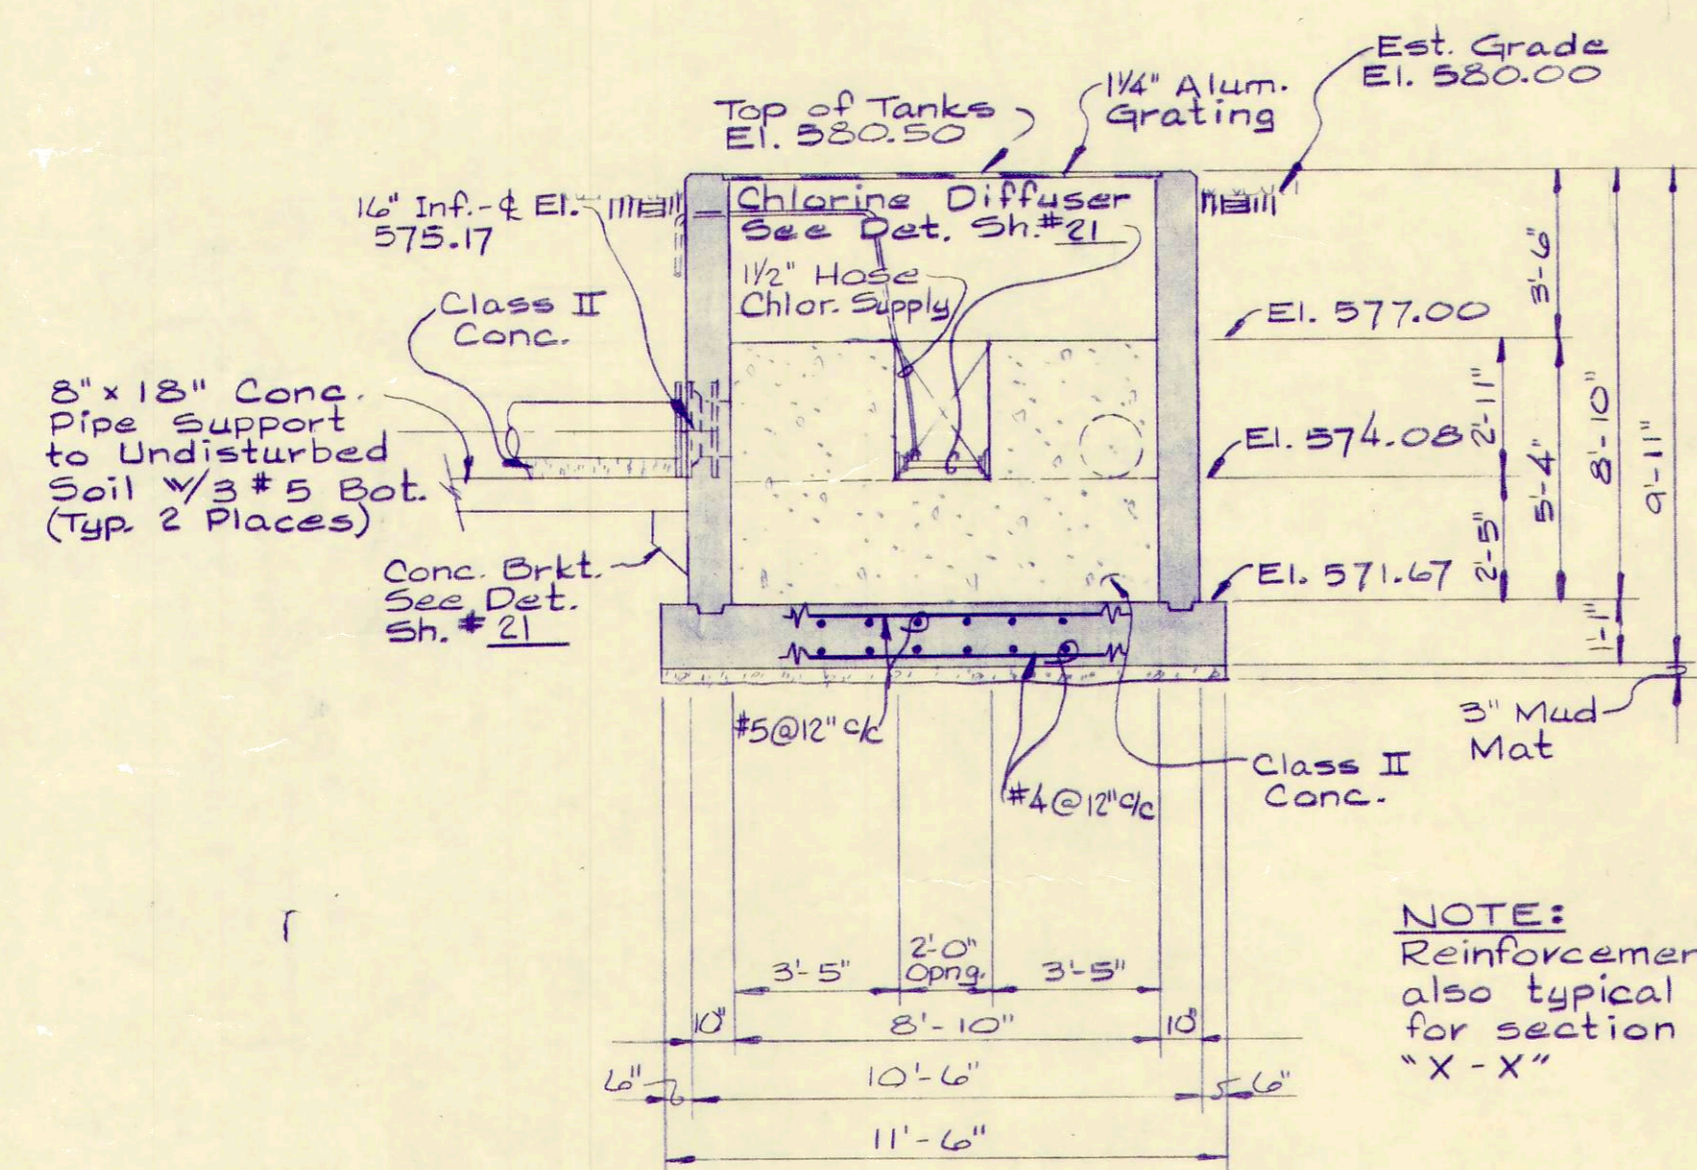 Est. Grade
El. 580.00
1 1/4" Alum.
Grating
Top of Tanks
El. 580.50
16" Inf.-℄ El.
575.17
Chlorine Diffuser
See Det. Sh.#21
1 1/2" Hose
Chlor. Supply
Class II
Conc.
8" x 18" Conc.
Pipe Support
to Undisturbed
Soil w/3 #5 Bot.
(Typ. 2 Places)
Conc. Brkt.
See Det.
Sh. # 21
El. 577.00
El. 574.08
El. 571.67
3'-6"
2'-11"
2'-5"
5'-4"
8'-10"
1'-1"
9'-11"
3" Mud
Mat
#5@12" c/c
#4@12" c/c
Class II
Conc.
3'-5"
2'-0"
Opng.
3'-5"
10"
8'-10"
10"
6"
10'-6"
6"
11'-6"
NOTE:
Reinforcemen
also typical
for section
"X - X"